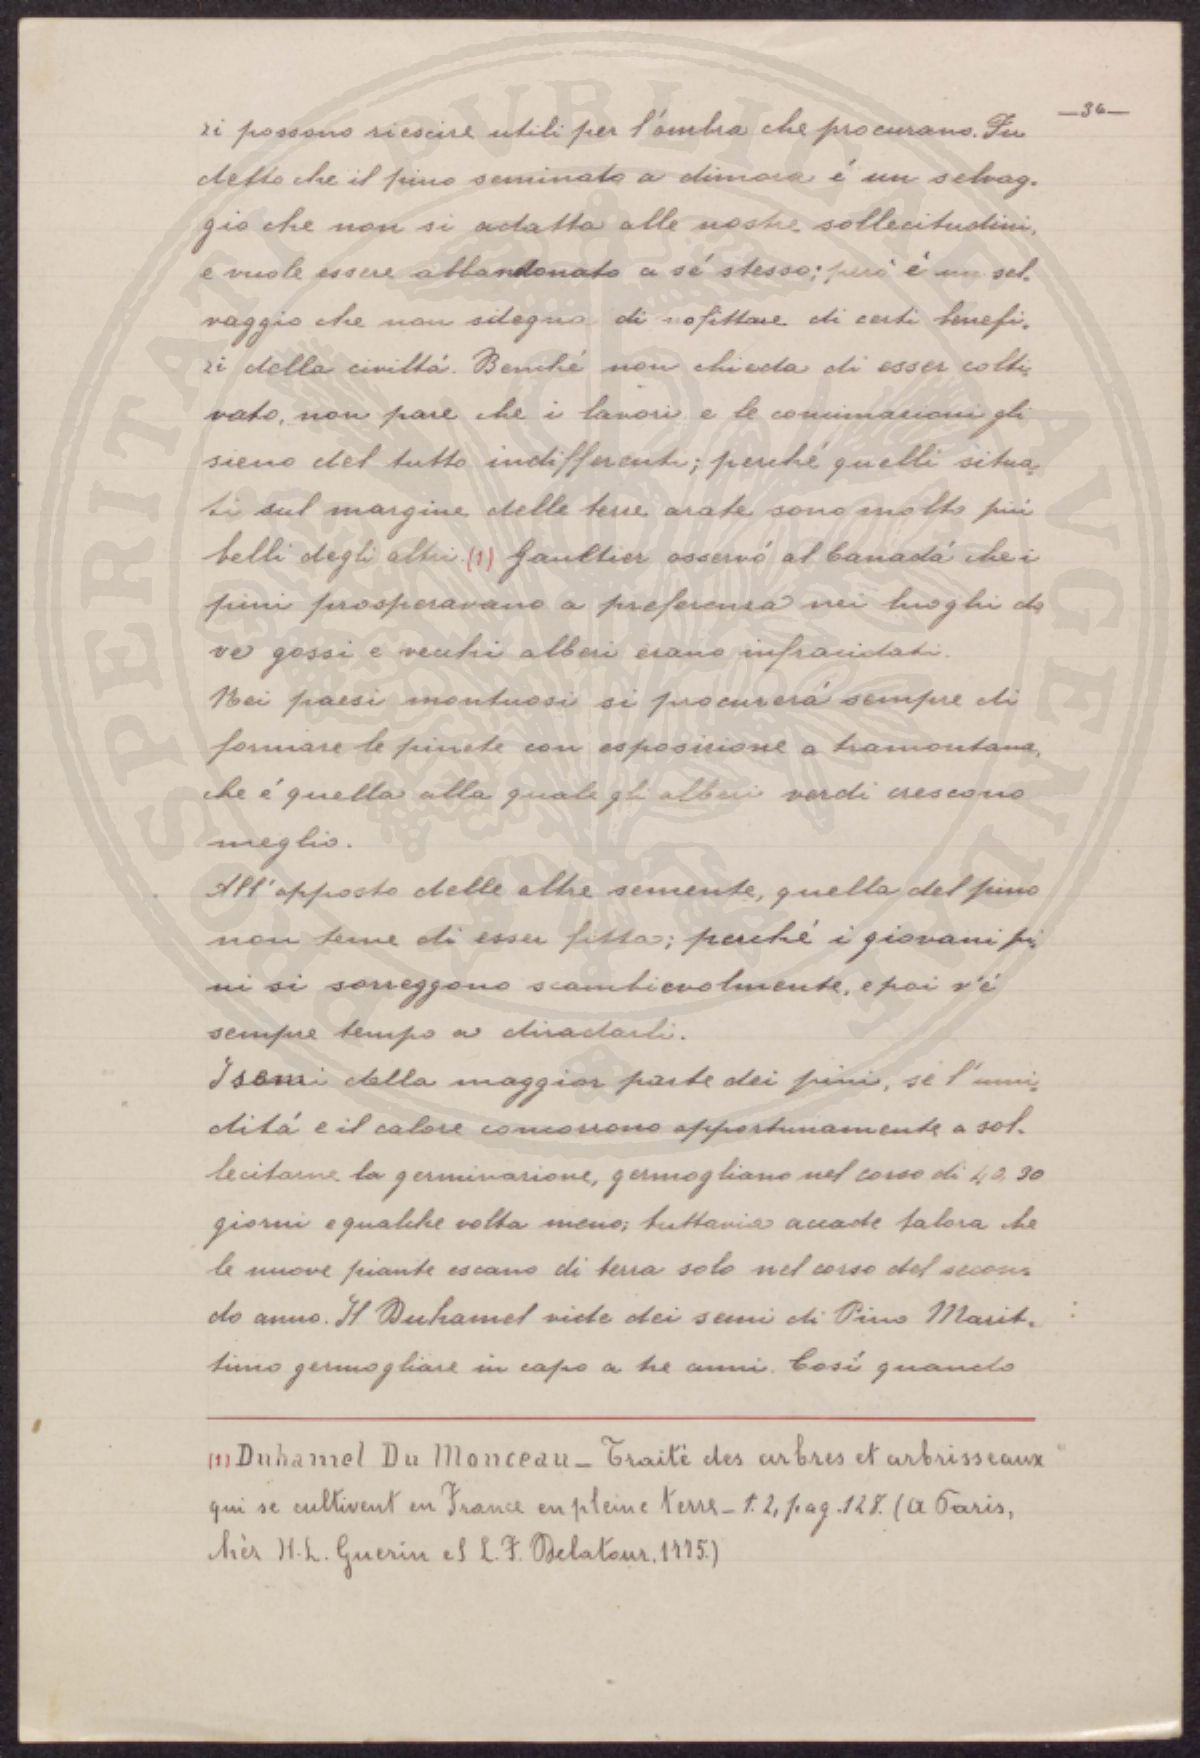 —36—
zi possono riescire utili per l'ombra che procurano. Fu
detto che il pino seminato a dimora é un selvag-
gio che non si adatta alle nostre sollecitudini,
e vuole essere abbandonato a sé stesso; peró é un sel-
vaggio che non sdegna di rofittare di certi benefi-
zi della civiltá. Benché non chieda di esser colti-
vato, non pare che i lavori e le concimazioni gli
sieno del tutto indifferenti; perché quelli situa-
ti sul margine delle terre arate sono molto piú
belli degli altri. (1) Gaultier osservó al Canadá che i
pini prosperavano a preferenza nei luoghi do
ve gossi e vecchi alberi erano infracidati.
Nei paesi montuosi si procurerá sempre di
formare le pinete con esposizione a tramontana,
che é quella alla quale gli alberi verdi crescono
meglio.
All'opposto delle altre semente, quella del pino
non teme di esser fitta; perché i giovani pi-
ni si sorreggono scambievolmente, e poi v'é
sempre tempo a diradarli.
I semi della maggior parte dei pini, se l'umi-
ditá e il calore concorrono opportunamente a sol-
lecitarne la germinazione, germogliano nel corso di 40, 30
giorni e qualche volta meno; tuttavia accade talora che
le nuove piante escano di terra solo nel corso del secon-
do anno. Il Duhamel vide dei semi di Pino Marit-
timo germogliare in capo a tre anni. Cosí quando
(1) Duhamel Du Monceau — Traité des arbres et arbrisseaux
qui se cultivent en France en pleine terre — t. 2, pag. 128. (A Paris,
chèr H. L. Guerin et L. F. Delatour, 1775.)
PROSPERITATI PVBLICAE AVGENDAE